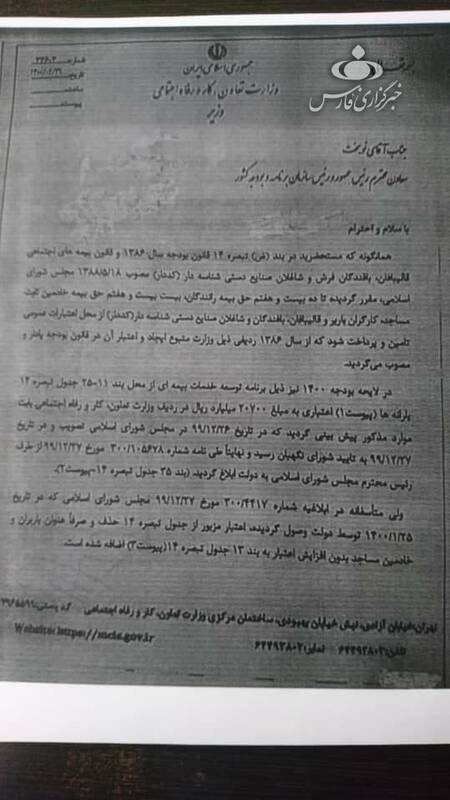 خبرگزاری فارس
شماره: ۲۲۶۰۲
تاریخ: ۱۴۰۰/۰۲/۲۹
ساعت:
پیوست:
جمهوری اسلامی ایران
وزارت تعاون، کار و رفاه اجتماعی
وزیر
جناب آقای نوبخت
معاون محترم رئیس جمهور و رئیس سازمان برنامه و بودجه کشور
با سلام و احترام
همانگونه که مستحضرید در بند (ض) تبصره ۱۴ قانون بودجه سال ۱۳۸۶ و قانون بیمه های اجتماعی
قالیبافان، بافندگان فرش و شاغلان صنایع دستی شناسه دار (کددار) مصوب ۱۳۸۸/۵/۱۸ مجلس شورای
اسلامی، مقرر گردیده تا ده بیست و هفتم حق بیمه رانندگان، بیست بیست و هفتم حق بیمه خادمین ثابت
مساجد، کارگران باربر و قالیبافان، بافندگان و شاغلان صنایع دستی شناسه دار(کددار) از محل اعتبارات عمومی
تامین و پرداخت شود که از سال ۱۳۸۶ ردیفی ذیل وزارت متبوع ایجاد و اعتبار آن در قانون بودجه پادار و
مصوب می‌گردید.
در لایحه بودجه ۱۴۰۰ نیز ذیل برنامه توسعه خدمات بیمه ای از محل بند ۱۱-۲۵ جدول تبصره ۱۴
یارانه ها (پیوست۱) اعتباری به مبلغ ۲۰۷۰۰ میلیارد ریال در ردیف وزارت تعاون، کار و رفاه اجتماعی بابت
موارد مذکور پیش بینی گردید که در تاریخ ۹۹/۱۲/۲۶ در مجلس شورای اسلامی تصویب و در تاریخ
۹۹/۱۲/۲۷ به تایید شورای نگهبان رسید و نهایتاً طی نامه شماره ۳۰۰/۱۰۵۶۷۸ مورخ ۹۹/۱۲/۲۷ از طرف
رئیس محترم مجلس شورای اسلامی به دولت ابلاغ گردید. (بند ۳۵ جدول تبصره ۱۴-پیوست۲).
ولی متأسفانه در ابلاغیه شماره ۳۰۰/۴۴۱۷ مورخ ۹۹/۱۲/۲۷ مجلس شورای اسلامی که در تاریخ
۱۴۰۰/۱/۲۵ توسط دولت وصول گردیده، اعتبار مزبور از جدول تبصره ۱۴ حذف و صرفاً عنوان باربران و
خادمین مساجد بدون افزایش اعتبار به بند ۱۳ جدول تبصره ۱۴ (پیوست۳) اضافه شده است.
تهران،خیابان آزادی، نبش خیابان بهبودی، ساختمان مرکزی وزارت تعاون، کار و رفاه اجتماعی کد پستی:
تلفن: ۶۴۴۹۲۸۰۲ نمابر: ۶۴۴۹۲۸۰۲ Website: https://mcls.gov.ir